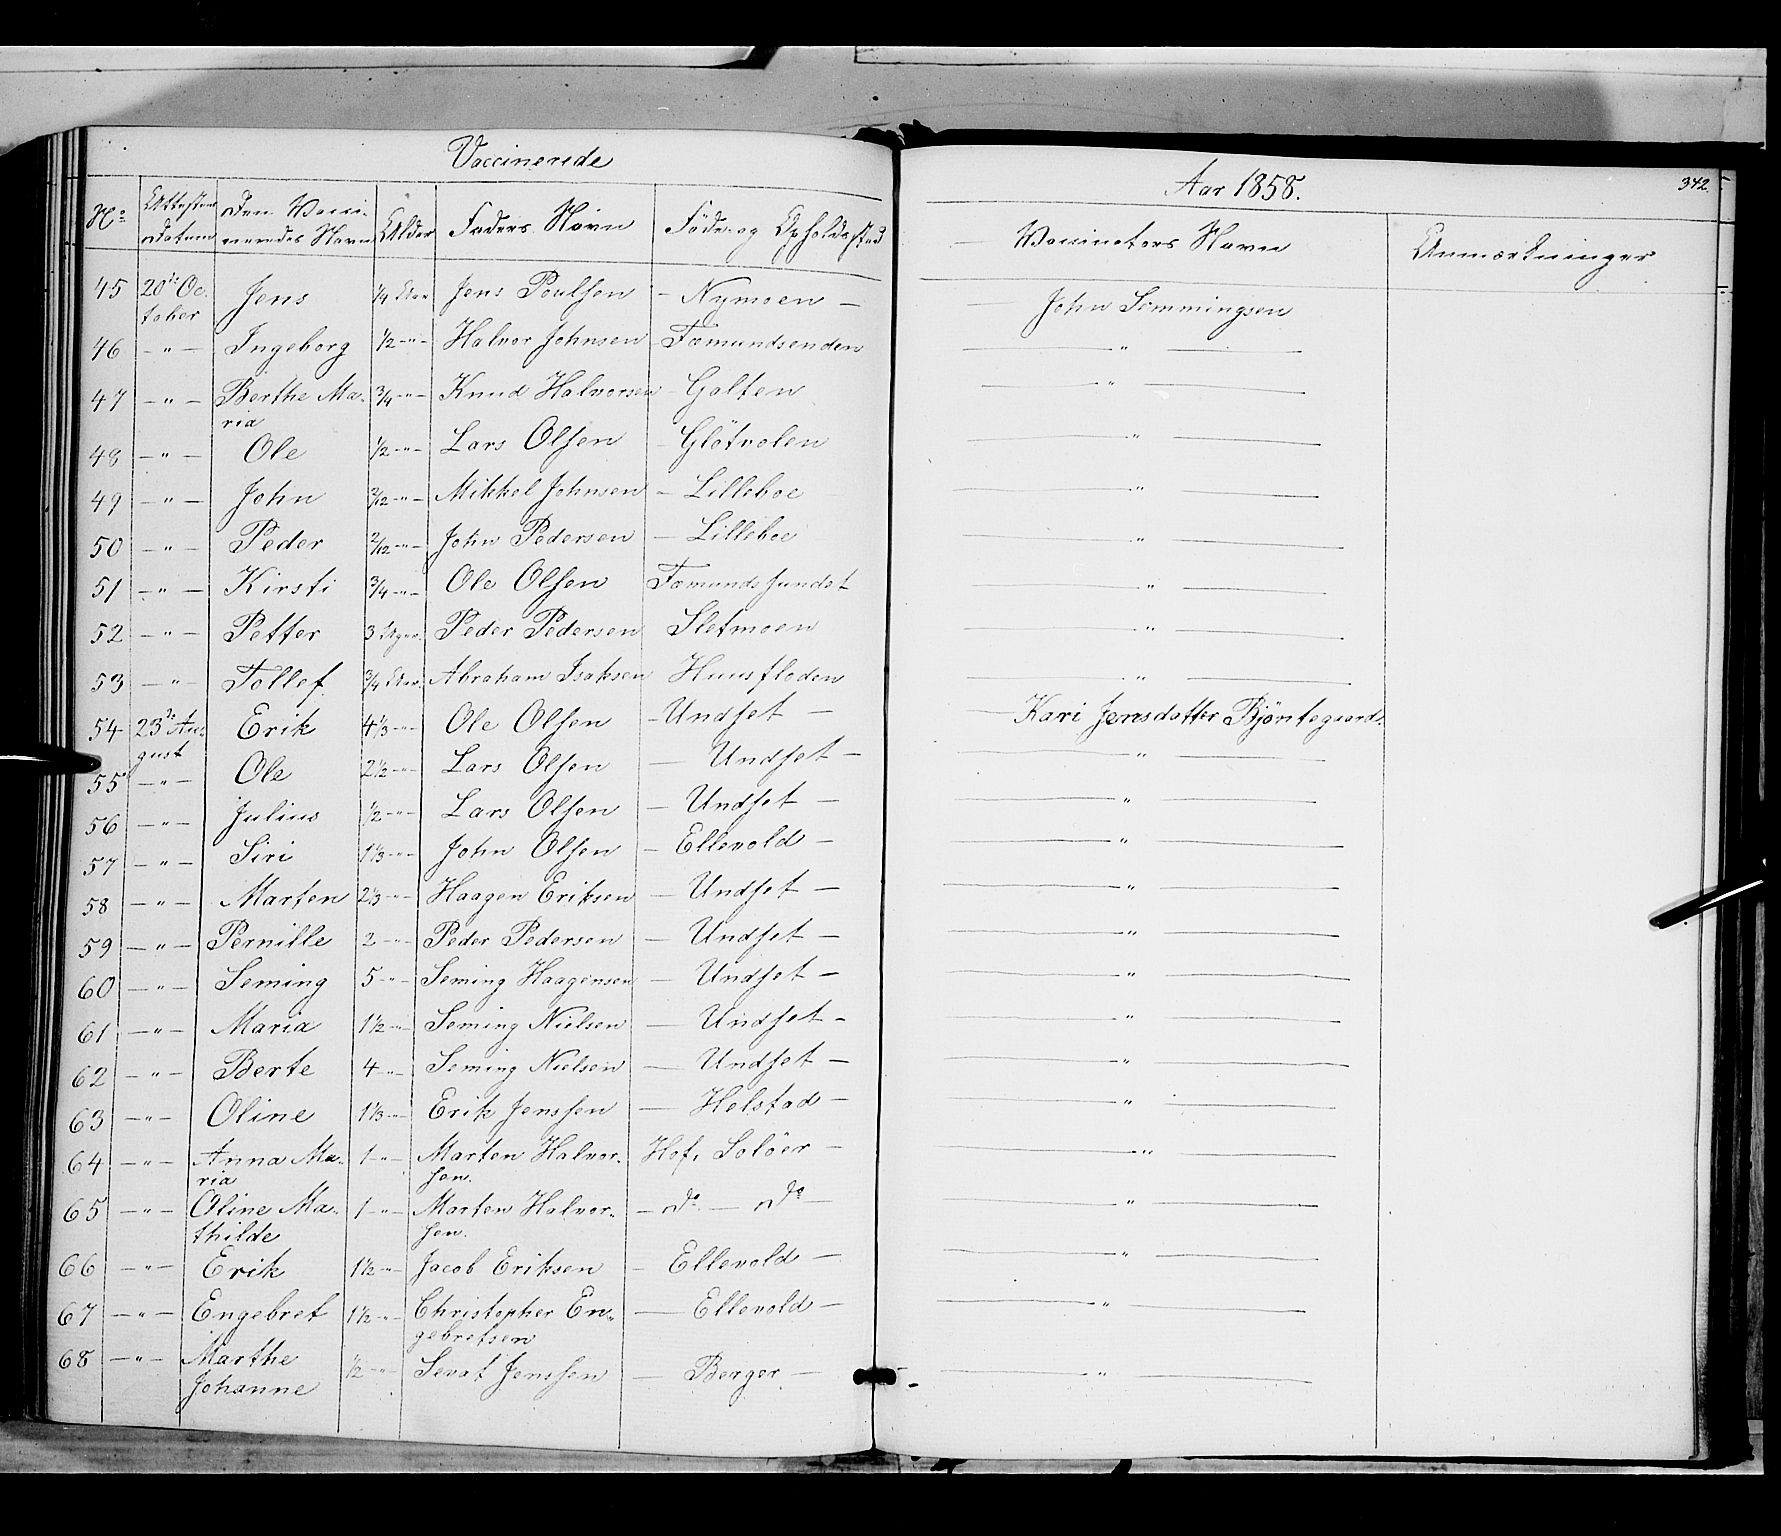 Vaccinerede
Aar 1858.
342.
No Attestens Datum Den Vacci- neredes Navn Alder Faders Navn Føde- og Opholdssted Vaccinators Navn Anmærkninger
45 20de Oc- tober Jens 1/4 Aar Jens Poulsen - Nymoen - John Semmingsen
46 - " - Ingeborg 1/2 - " - Halvor Johnsen Fæmundsenden "
47 - " - Berthe Ma- ria 3/4 - " - Knud Halvorsen - Galten "
48 - " - Ole 1/2 - " - Lars Olsen - Glötvolen "
49 - " - John 3/12 - " - Mikkel Johnsen - Lilleboe "
50 - " - Peder 2/12 - " - John Pedersen - Lilleboe "
51 - " - Kirsti 3/4 - " - Ole Olsen Fæmundssundet "
52 - " - Petter 3 Uger Peder Pedersen Sletmoen "
53 - " - Tollef 3/4 Aar Abraham Isaksen Huusfloden "
54 23de Au- gust Erik 4 1/3 - " - Ole Olsen - Undset - Kari Jensdatter Bjöntegaard.
55 - " - Ole 2 1/2 - " - Lars Olsen - Undset - "
56 - " - Julius 1/2 - " - Lars Olsen - Undset - "
57 - " - Siri 1 1/3 - " - John Olsen - Ellevold - "
58 - " - Marten 2 1/3 - " - Haagen Eriksen - Undset - "
59 - " - Pernille 2 - " - Peder Pedersen - Undset - "
60 - " - Seming 5 - " - Seming Haagensen - Undset - "
61 - " - Maria 1 1/2 - " - Seming Nielsen - Undset - "
62 - " - Berte 4 - " - Seming Nielsen - Undset - "
63 - " - Oline 1 1/3 - " - Erik Jenssen - Helstad - "
64 - " - Anna Ma- ria 1 - " - Marten Halvor- sen. Hof, Solöer - "
65 - " - Oline Ma- thilde 1 - " - Marten Halvor- sen. - do - do - "
66 - " - Erik 1 1/2 - " - Jacob Eriksen - Ellevold - "
67 - " - Engebret 1 1/2 - " - Christopher En- gebretsen - Ellevold - "
68 - " - Marthe Johanne 1/2 - " - Sevat Jenssen - Berger - "